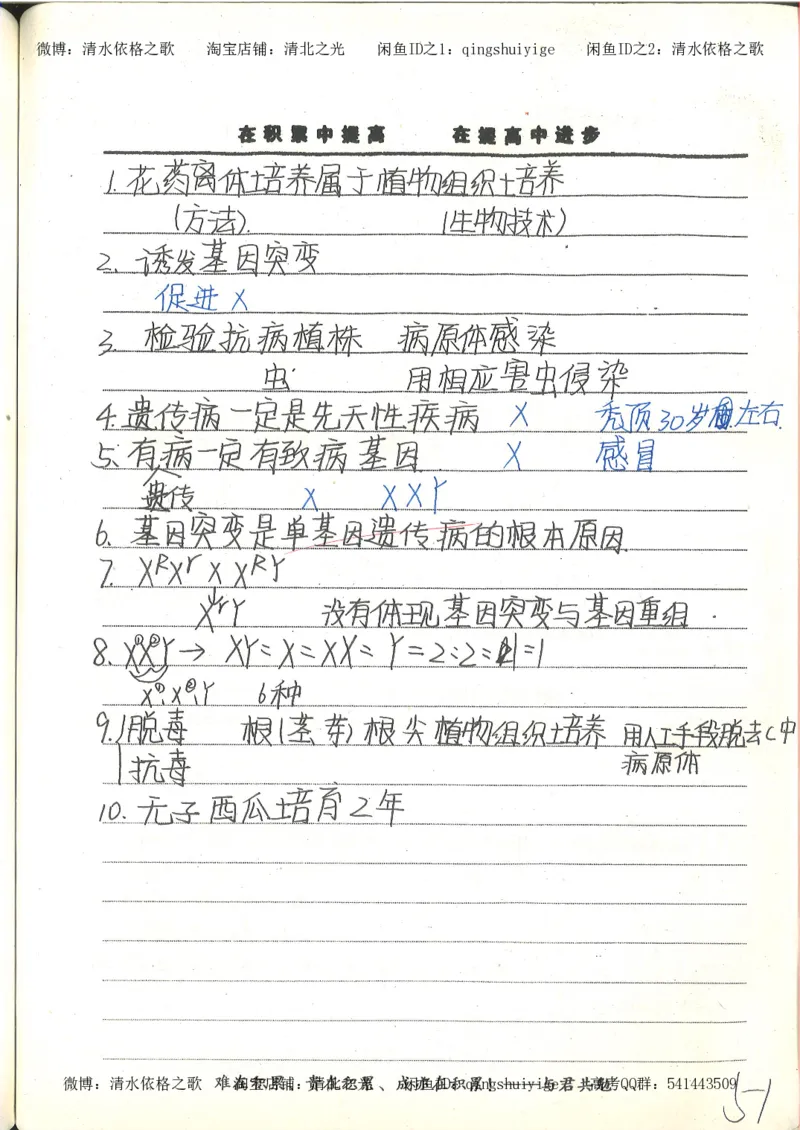 微博：清水依格之歌 淘宝店铺：清北之光 闲鱼ID之1：qingshuiyige 闲鱼ID之2：清水依格之歌
在积累中提高 在提高中进步
1. 花药离体培养属于植物组织培养
(方法). (生物技术)
2. 诱发基因突变
促进 X
3. 检验抗病植株 病原体感染
虫 用相应害虫侵染
4. 遗传病一定是先天性疾病 X 秃顶30岁左右.
5. 有病一定有致病基因 X 感冒
遗传 X XXY
6. 基因突变是单基因遗传病的根本原因.
7. XᴿXʳ × XᴿY
↓
XʳY 没有体现基因突变与基因重组.
8. X①X②Y → XY:X:XX:Y=2:2:1:1
X①,X②,Y 6种
9. 脱毒 根(茎芽)根尖植物组织培养 用人工手段脱去C中
抗毒 病原体
10. 无子西瓜培育2年
微博：清水依格之歌 淘宝店铺：清北之光 闲鱼ID：qingshuiyige 高考QQ群：541443509
51